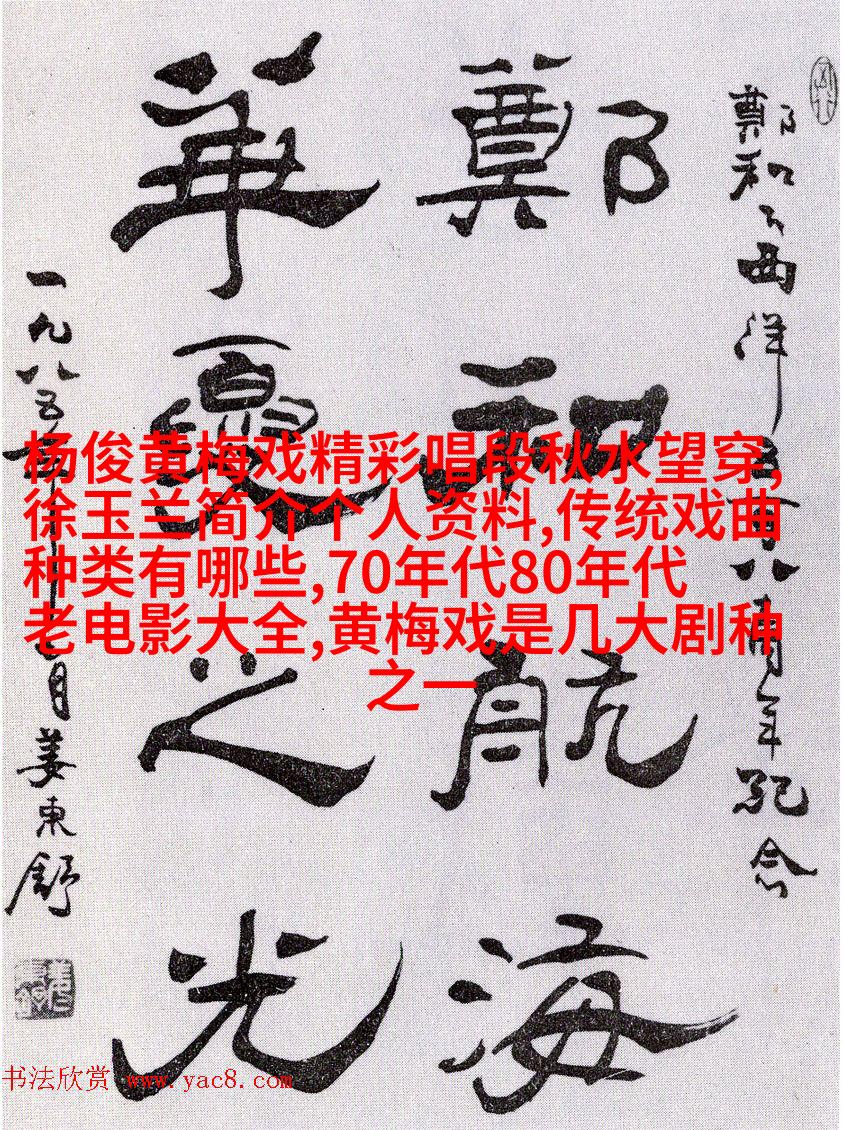 鄭和下西洋五百八十周年紀念
鄭和航海
華夏之光
一九八五年
月姜東舒
杨俊黄梅戏精彩唱段秋水望穿,
徐玉兰简介个人资料,传统戏曲
种类有哪些,70年代80年代
老电影大全,黄梅戏是几大剧种
之一
书法欣赏 www.yac8.com